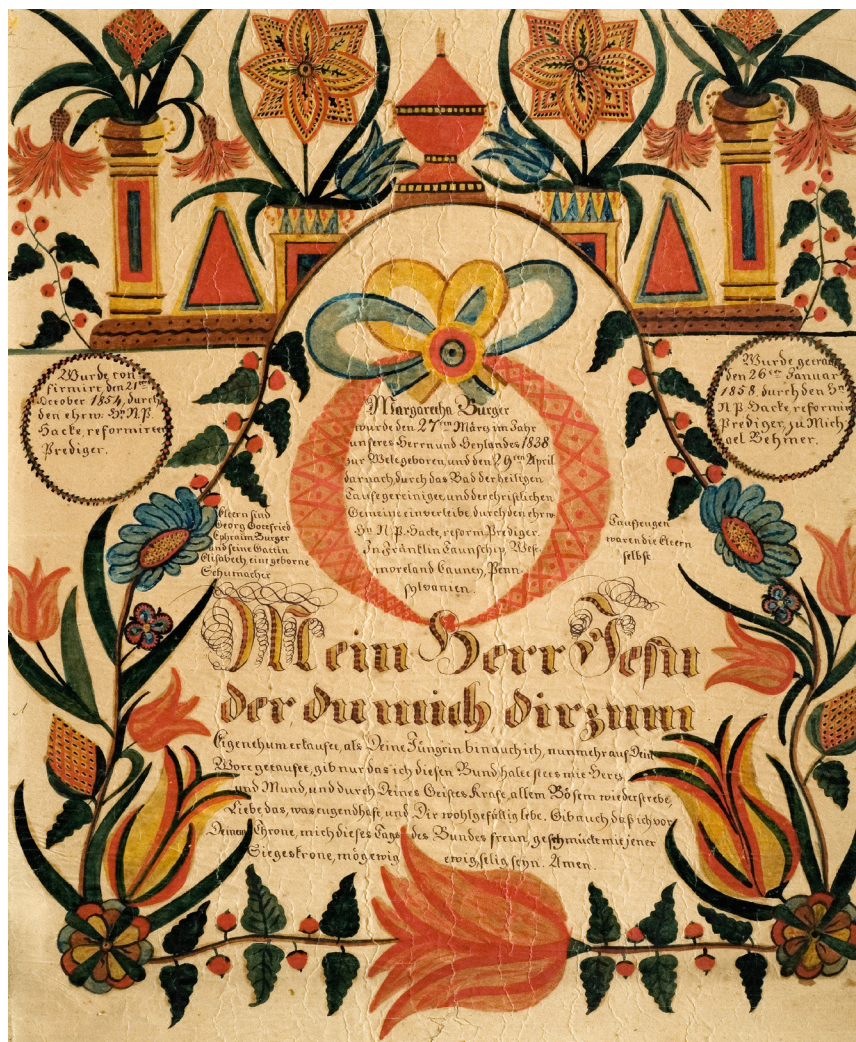 Wurde con=
firmirt, den 21ten
October 1854, durch
den ehrw. Hr. N.P.
Hacke, reformirten
Prediger.
Margaretha Burger
wurde den 27ten März im Jahr
unseres Herrn und Heylandes 1838
zur Welt geboren, und den 29ten April
darnach, durch das Bad der heiligen
Taufe gereiniget, und der christlichen
Gemeine einverleibt, durch den ehrw.
Hr. N. P. Hacke, reform. Prediger.
In Fränklin Taunschip, West-
moreland Caunty, Penn-
sylvanien.
Wurde getraut
den 26ten Januar
1858, durch den Hr.
N P. Hacke, reformirten
Prediger, zu Mich-
ael Behmer.
Eltern sind
Georg Gottfried
Ephraim Burger
und seine Gattin
Elisabeth eine geborne
Schumacher
Taufzeugen
waren die Eltern
selbst.
Mein Herr Jesu
der du mich dir zum
Eigenthum erkaufet, als Deine Jüngrin bin auch ich, nunmehr auf Dein
Wort getaufet, gib nur das ich diesen Bund halte stets mit Herz
und Mund, und durch Deines Geistes Kraft, allem Bösem wiederstrebe,
Liebe das, was tugendhaft, und Dir wohlgefällig lebe. Gib auch daß ich vor
Deinem Throne, mich dieses Tags des Bundes freun, geschmückt mit jener
Siegeskrone, mög ewig ewig selig seyn. Amen.